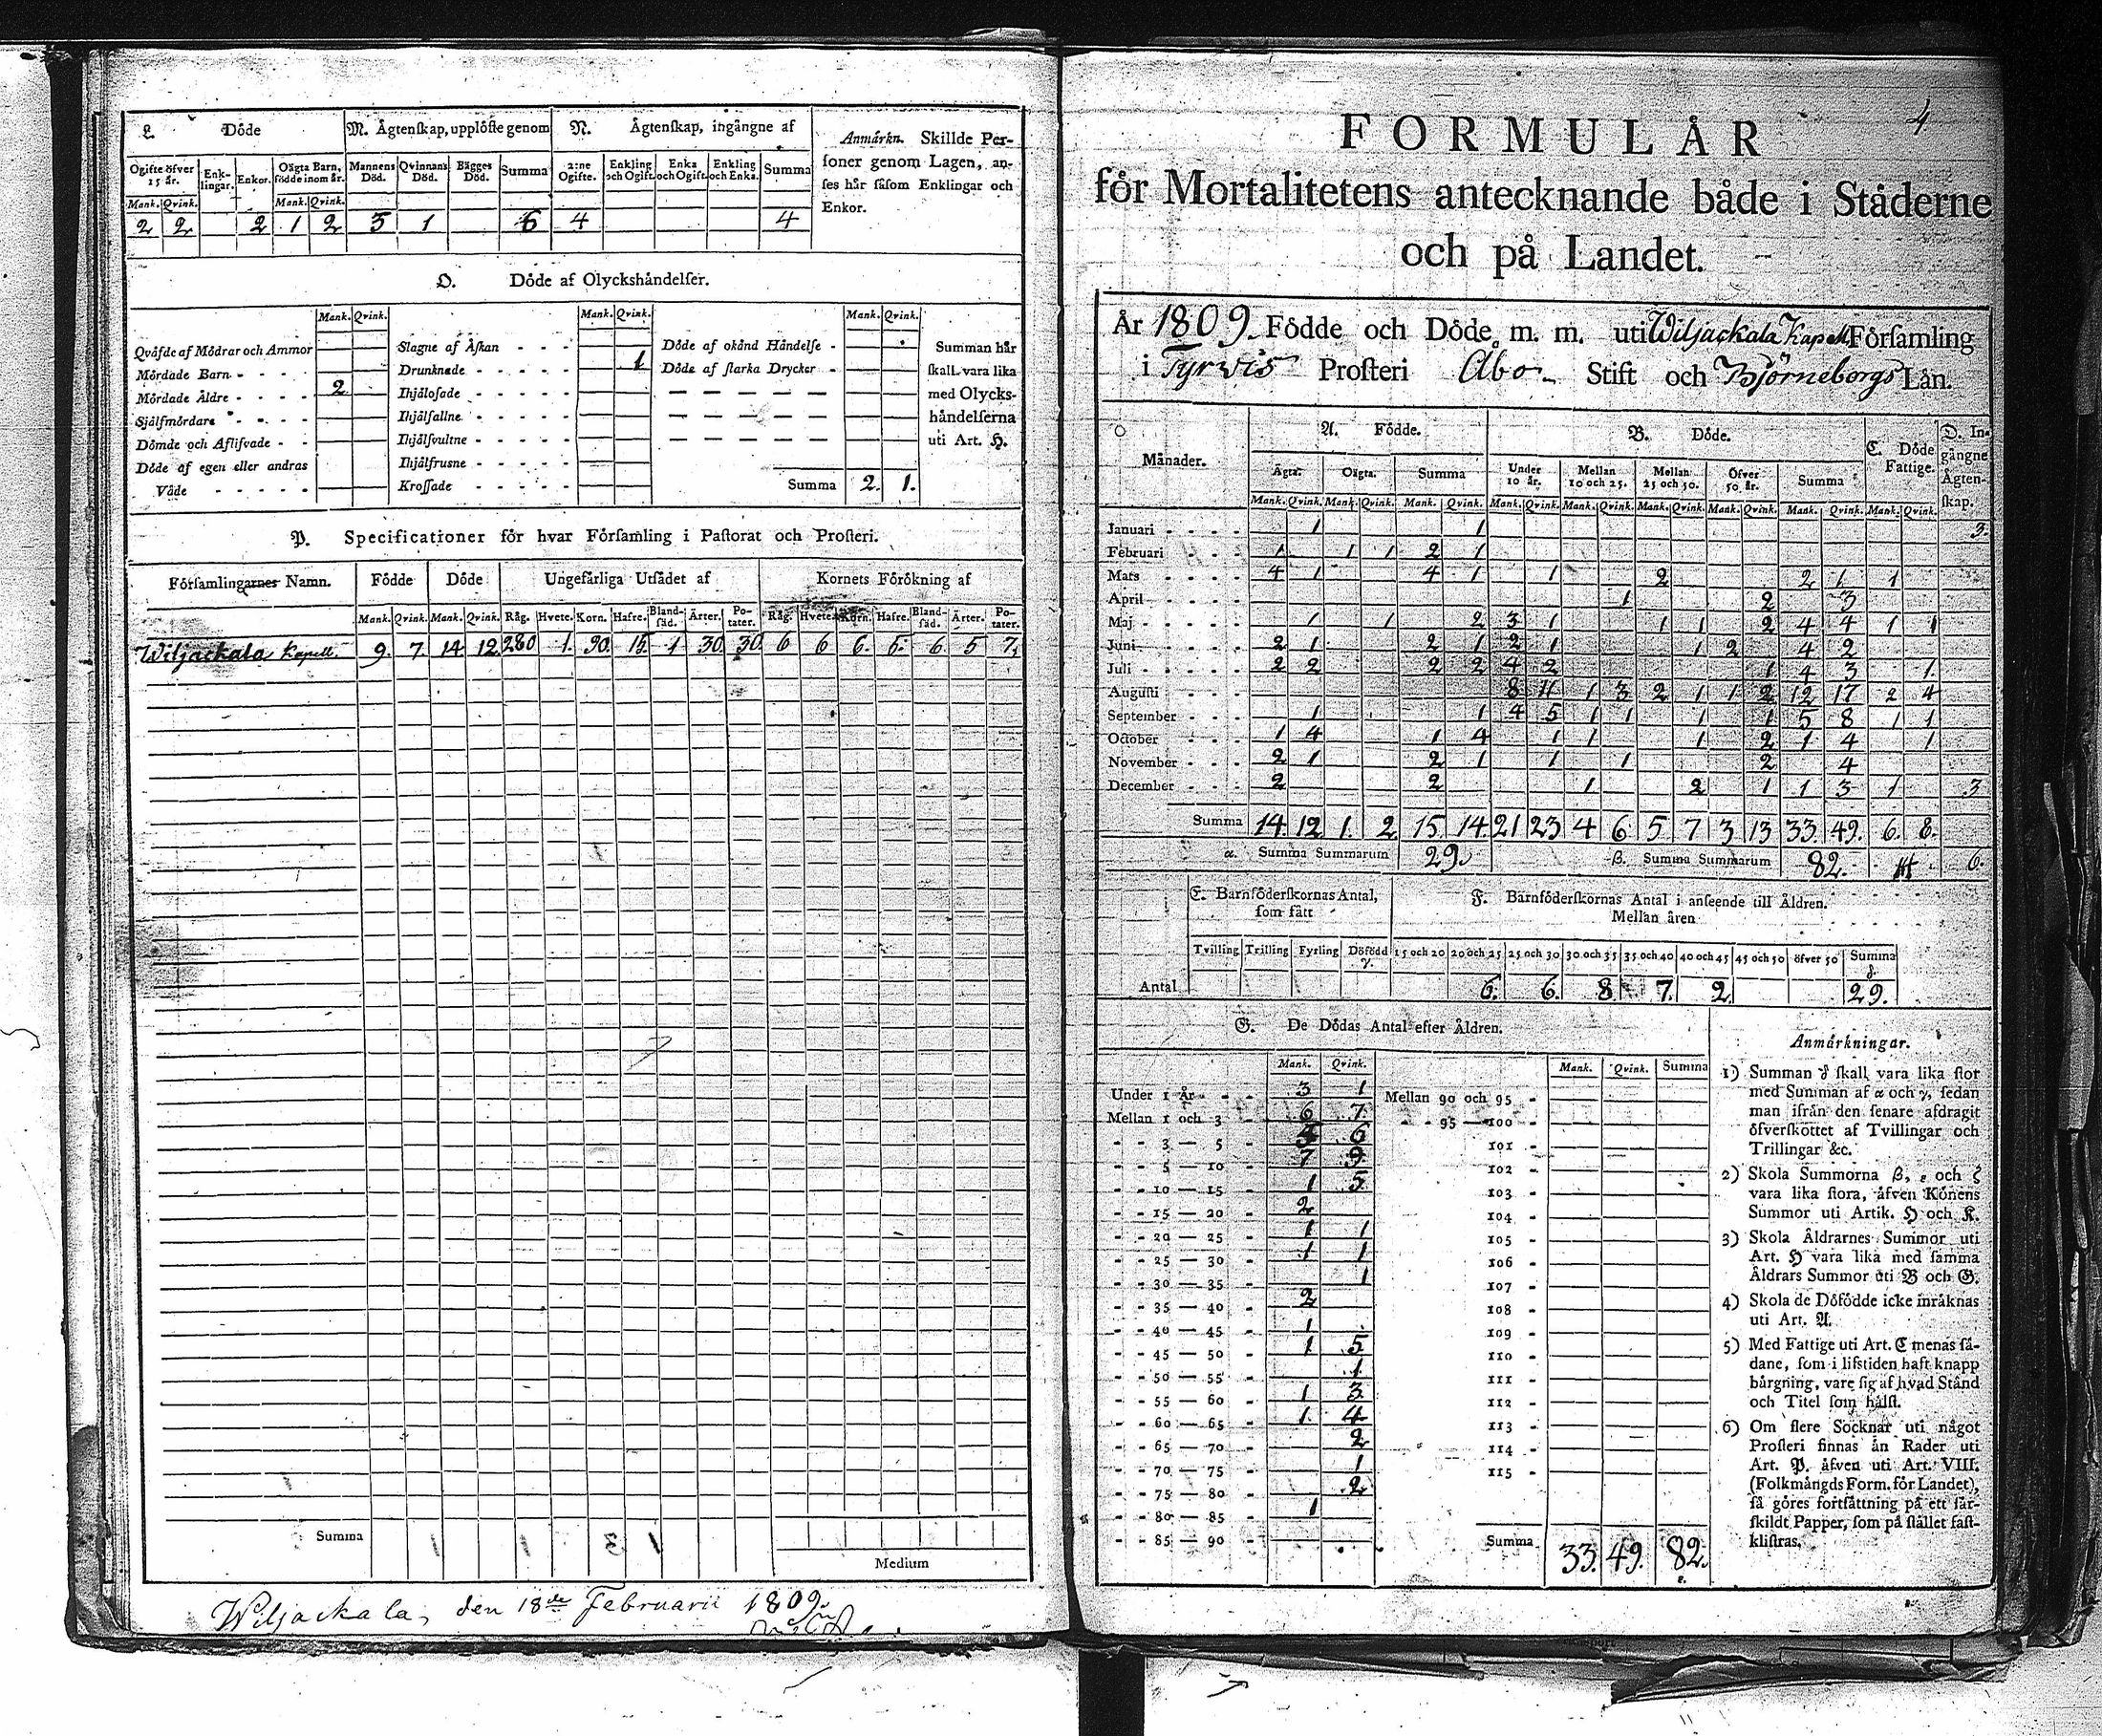 L. Döde
M. Ägtenskap, upplöste genom
N. Ägtenskap, ingångne af
Anmärkn. Skillde Per-
soner genom Lagen, an-
ses här såsom Enklingar och
Enkor.
Ogifte öfver 15 år. Enk-lingar. Enkor. Oägta Barn, födde inom år. Mannens Död. Qvinnans Död. Bägges Död. Summa 2:ne Ogifte. Enkling och Ogift. Enka och Ogift. Enkling och Enka. Summa
Mank. Qvink. Mank. Qvink.
2 2 2 1 2 5 1 6 4 4
O. Döde af Olyckshändelser.
Mank. Qvink. Mank. Qvink. Mank. Qvink.
Qväfde af Mödrar och Ammor
Mördade Barn
Mördade Äldre 2
Sjelfmördare
Dömde och Aflifvade
Döde af egen eller andras
Våde
Slagne af Åskan
Drunknade 1
Ihjälosade
Ihjälfallne
Ihjälsvultne
Ihjälfrusne
Krossade
Döde af okänd Händelse
Döde af starka Drycker
Summa 2. 1.
Summan här
skall vara lika
med Olycks-
händelserna
uti Art. H.
P. Specificationer för hvar Församling i Pastorat och Prosteri.
Församlingarnes Namn. Födde Döde Ungefärliga Utsädet af Kornets Förökning af
Mank. Qvink. Mank. Qvink. Råg. Hvete. Korn. Hafre. Bland-säd. Ärter. Po-tater. Råg. Hvete. Korn. Hafre. Bland-säd. Ärter. Po-tater.
Wiljackala Kapell. 9. 7. 14 12 280 1. 90. 15. 1 30 30. 6 6 6. 5. 6. 5 7.
Summa
Medium
Wiljackala, den 18de Februarii 1809.
4
FORMULÄR
för Mortalitetens antecknande både i Städerne
och på Landet.
År 1809. Födde och Döde m. m. uti Wiljackala Kapell Församling
i Tyrvis Prosteri Åbo Stift och Björneborgs Län.
Månader. A. Födde. B. Döde. C. Döde Fattige. D. In-gångne Ägten-skap.
Ägta. Oägta. Summa Under 10 år. Mellan 10 och 25. Mellan 25 och 50. Öfver 50 år. Summa
Mank. Qvink. Mank. Qvink. Mank. Qvink. Mank. Qvink. Mank. Qvink. Mank. Qvink. Mank. Qvink. Mank. Qvink. Mank. Qvink.
Januari 1 1 3.
Februari 1 1 1 2 1
Mars 4 1 4 1 1 2 2 1 1
April 1 2 3
Maj 1 1 2 3 1 1 1 2 4 4 1 1
Juni 2 1 2 1 2 1 1 2 4 2
Juli 2 2 2 2 4 2 1 4 3 1.
Augusti 8 11 1 3 2 1 1 2 12 17 2 4
September 1 1 4 5 1 1 1 1 5 8 1 1
October 1 4 1 4 1 1 1 2 1 4 1
November 2 1 2 1 1 1 2 4
December 2 2 1 2 1 1 3 1 3
Summa 14. 12 1. 2 15. 14. 21 23 4 6 5 7 3 13 33. 49. 6. 8.
α. Summa Summarum 29. β. Summa Summarum 82. 6.
E. Barnföderskornas Antal,
som fått
F. Barnföderskornas Antal i anseende till Åldren.
Mellan åren
Tvilling Trilling Fyrling Döfödd γ. 15 och 20 20 och 25 25 och 30 30 och 35 35 och 40 40 och 45 45 och 50 öfver 50 Summa δ.
Antal 6. 6. 8 7. 2 29.
G. De Dödas Antal efter Åldren.
Mank. Qvink. Mank. Qvink. Summa
Under 1 År 3 1
Mellan 1 och 3 6 7.
3 — 5 6
5 — 10 7 9.
10 — 15 1 5
15 — 20 2
20 — 25 1 1
25 — 30 1 1
30 — 35 1
35 — 40 2
40 — 45 1
45 — 50 1 5
50 — 55 1
55 — 60 1 3
60 — 65 1. 4
65 — 70 2
70 — 75 1
75 — 80 2
80 — 85 1
85 — 90
Mellan 90 och 95
95 — 100
101
102
103
104
105
106
107
108
109
110
111
112
113
114
115
Summa 33. 49. 82.
ε.
Anmärkningar.
1) Summan δ skall vara lika stor
med Summan af α och γ, sedan
man ifrån den senare afdragit
öfverskottet af Tvillingar och
Trillingar &c.
2) Skola Summorna β, ε och ζ
vara lika stora, äfven Könens
Summor uti Artik. H och K.
3) Skola Åldrarnes Summor uti
Art. H vara lika med samma
Åldrars Summor uti B och G.
4) Skola de Döfödde icke inräknas
uti Art. A.
5) Med Fattige uti Art. C menas så-
dane, som i lifstiden haft knapp
bärgning, vare sig af hvad Stånd
och Titel som hälst.
6) Om flere Socknar uti något
Prosteri finnas än Rader uti
Art. P. äfven uti Art. VIII.
(Folkmängds Form. för Landet),
så göres fortsättning på ett sär-
skildt Papper, som på stället fast-
klistras.